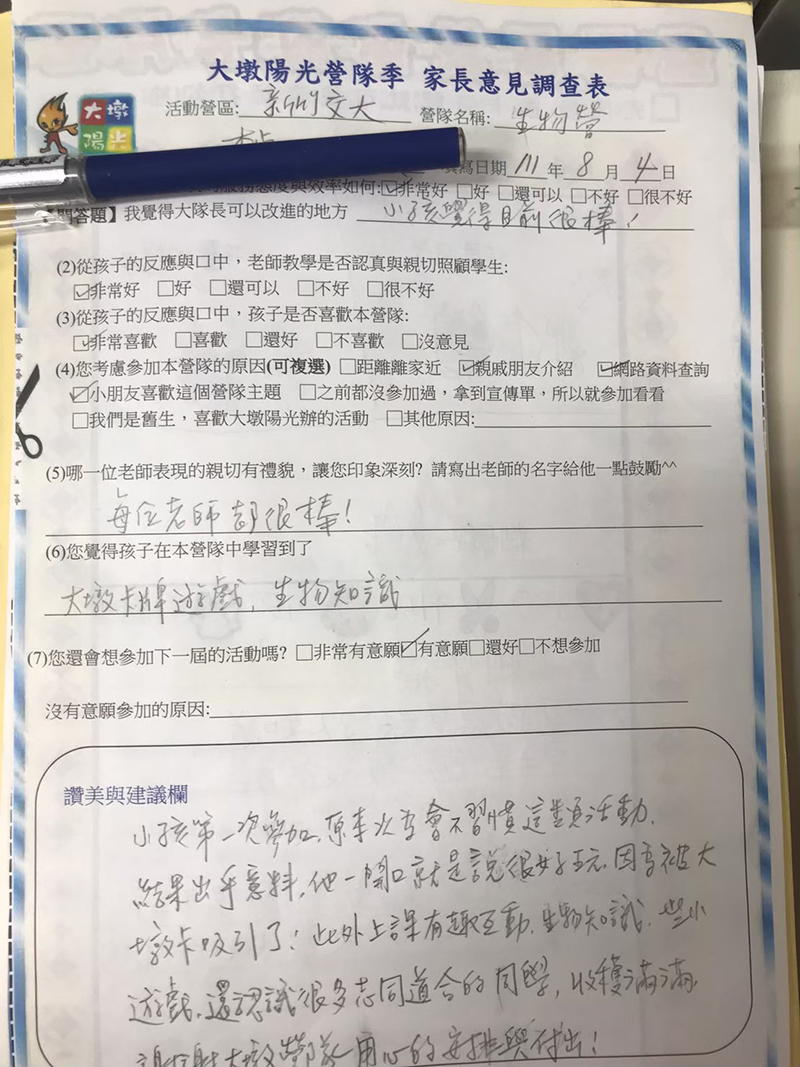 大墩陽光營隊季 家長意見調查表
大墩
陽光
活動營區: 新竹交大 營隊名稱: 生物營
填寫日期 111 年 8 月 4 日
服務態度與效率如何:☑非常好 □好 □還可以 □不好 □很不好
【問答題】我覺得大隊長可以改進的地方 小孩覺得目前很棒!
(2)從孩子的反應與口中，老師教學是否認真與親切照顧學生:
☑非常好 □好 □還可以 □不好 □很不好
(3)從孩子的反應與口中，孩子是否喜歡本營隊:
☑非常喜歡 □喜歡 □還好 □不喜歡 □沒意見
(4)您考慮參加本營隊的原因(可複選) □距離離家近 ☑親戚朋友介紹 ☑網路資料查詢
☑小朋友喜歡這個營隊主題 □之前都沒參加過，拿到宣傳單，所以就參加看看
□我們是舊生，喜歡大墩陽光辦的活動 □其他原因:
(5)哪一位老師表現的親切有禮貌，讓您印象深刻? 請寫出老師的名字給他一點鼓勵^^
每位老師都很棒!
(6)您覺得孩子在本營隊中學習到了
大墩卡牌遊戲、生物知識
(7)您還會想參加下一屆的活動嗎? □非常有意願☑有意願□還好□不想參加
沒有意願參加的原因:
讚美與建議欄
小孩第一次參加,原本以為會不習慣這類活動,
結果出乎意料,他一開口就是說很好玩,因為被大
墩卡吸引了!此外上課有趣互動,生物知識,些小
遊戲,還認識很多志同道合的同學,收穫滿滿,
謝謝大墩營隊用心的安排與付出!